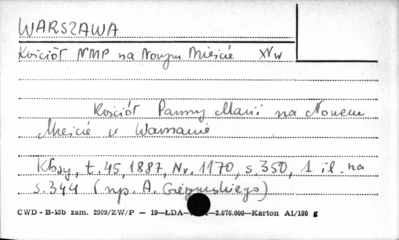 WARSZAWA
Kościół NMP na Nowym Mieście XV w
Kościół Panny Marii na Nowem
Mieście w Warszawie
Kłosy, t. 45, 1887, Nr. 1170, s 350, 1 il. na
s. 344 (rys. A. Gierymskiego)
CWD - B-15b zam. 2989/ZW/P — 19—ŁDA— —2.076.000—Karton A1/180 g